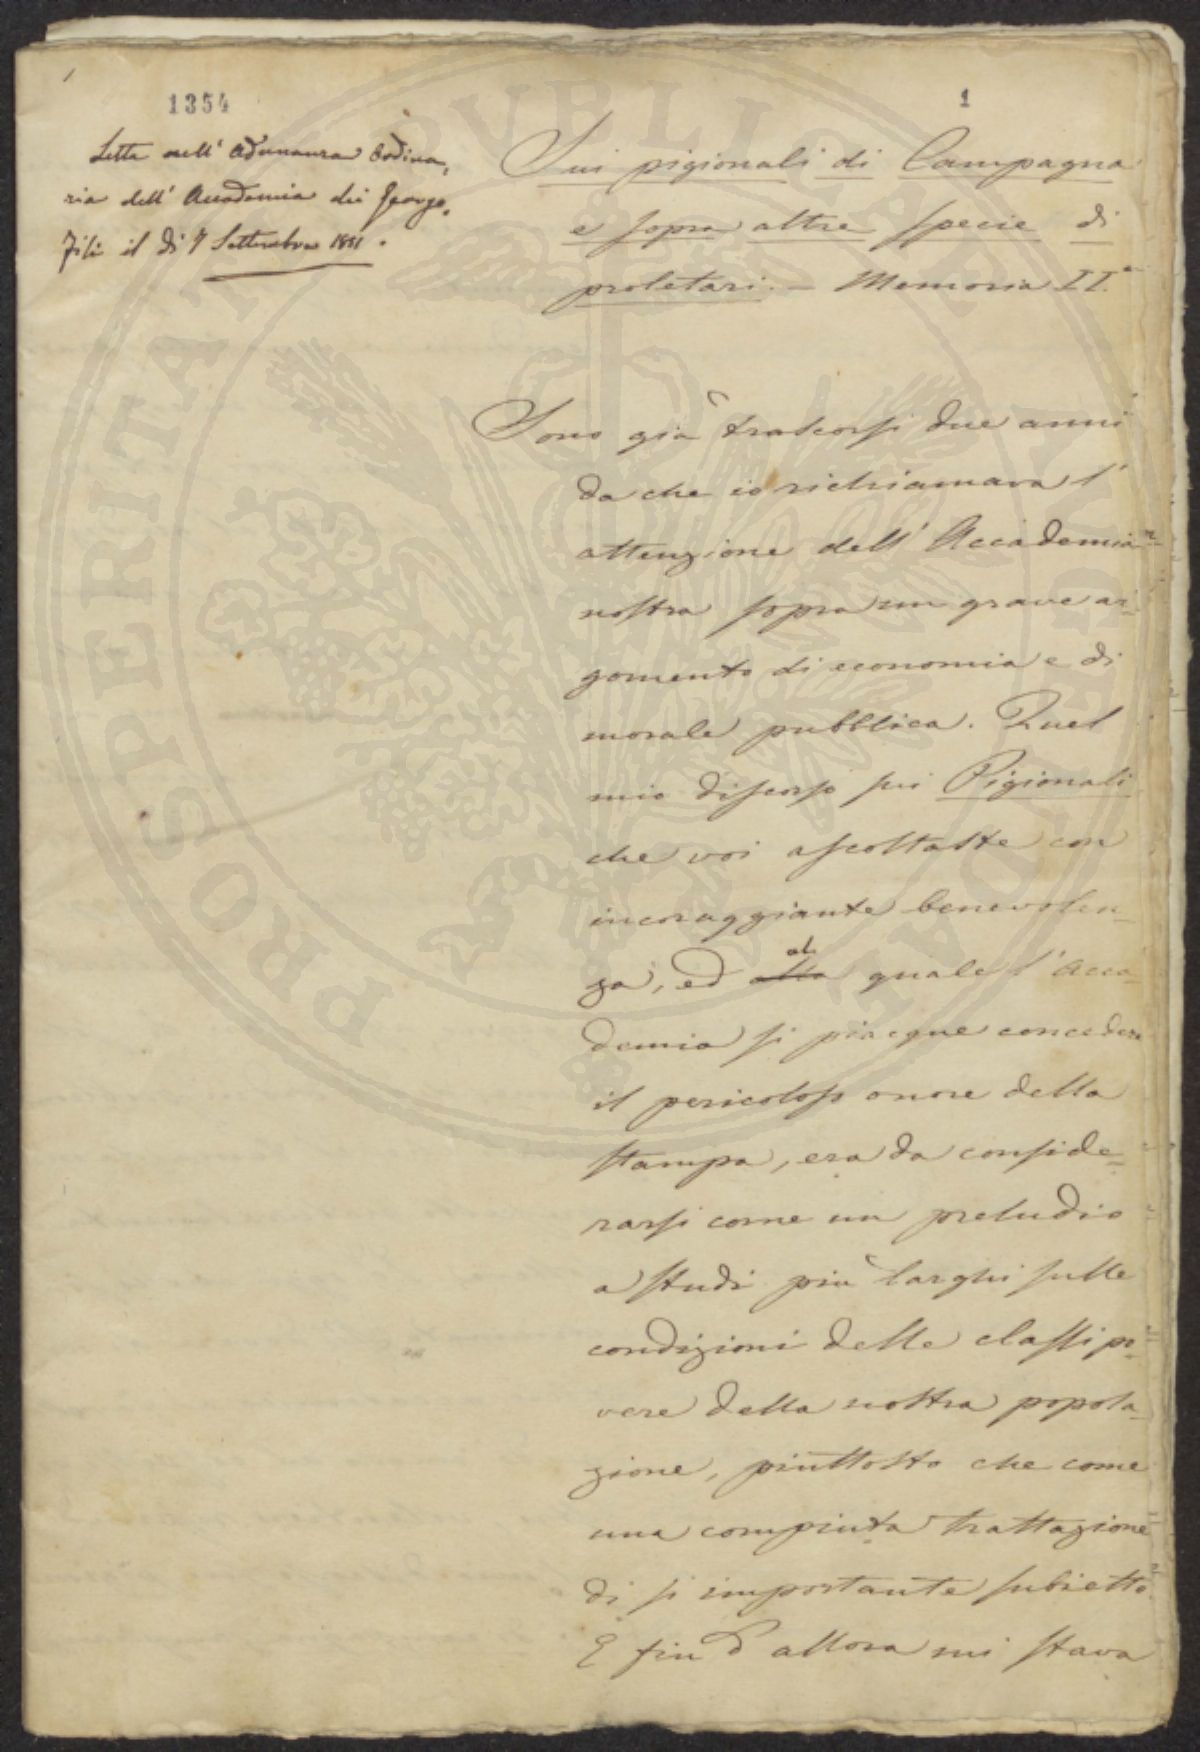 1354
1
Letta nell' Adunanza Ordina,
ria dell' Accademia dei Georgo,
fili il dì 7 Settembre 1851.
Sui pigionali di Campagna
e sopra altre specie di
proletari. – Memoria II.ª
Sono già trascorsi due anni
da che io richiamava l'
attenzione dell' Accademia
nostra sopra un grave ar-
gomento di economia e di
morale pubblica. Quel
mio discorso sui Pigionali
che voi ascoltaste con
incoraggiante benevolen-
al
za, ed alla quale l'Acca-
demia si piacque concedere
il pericoloso onore della
stampa, era da conside-
rarsi come un preludio
a studi più larghi sulle
condizioni delle classi po-
vere della nostra popola-
zione, piuttosto che come
una compiuta trattazione
di si importante subietto.
E fin d'allora mi stava
PROSPERITATI PUBLICAE AUGENDAE